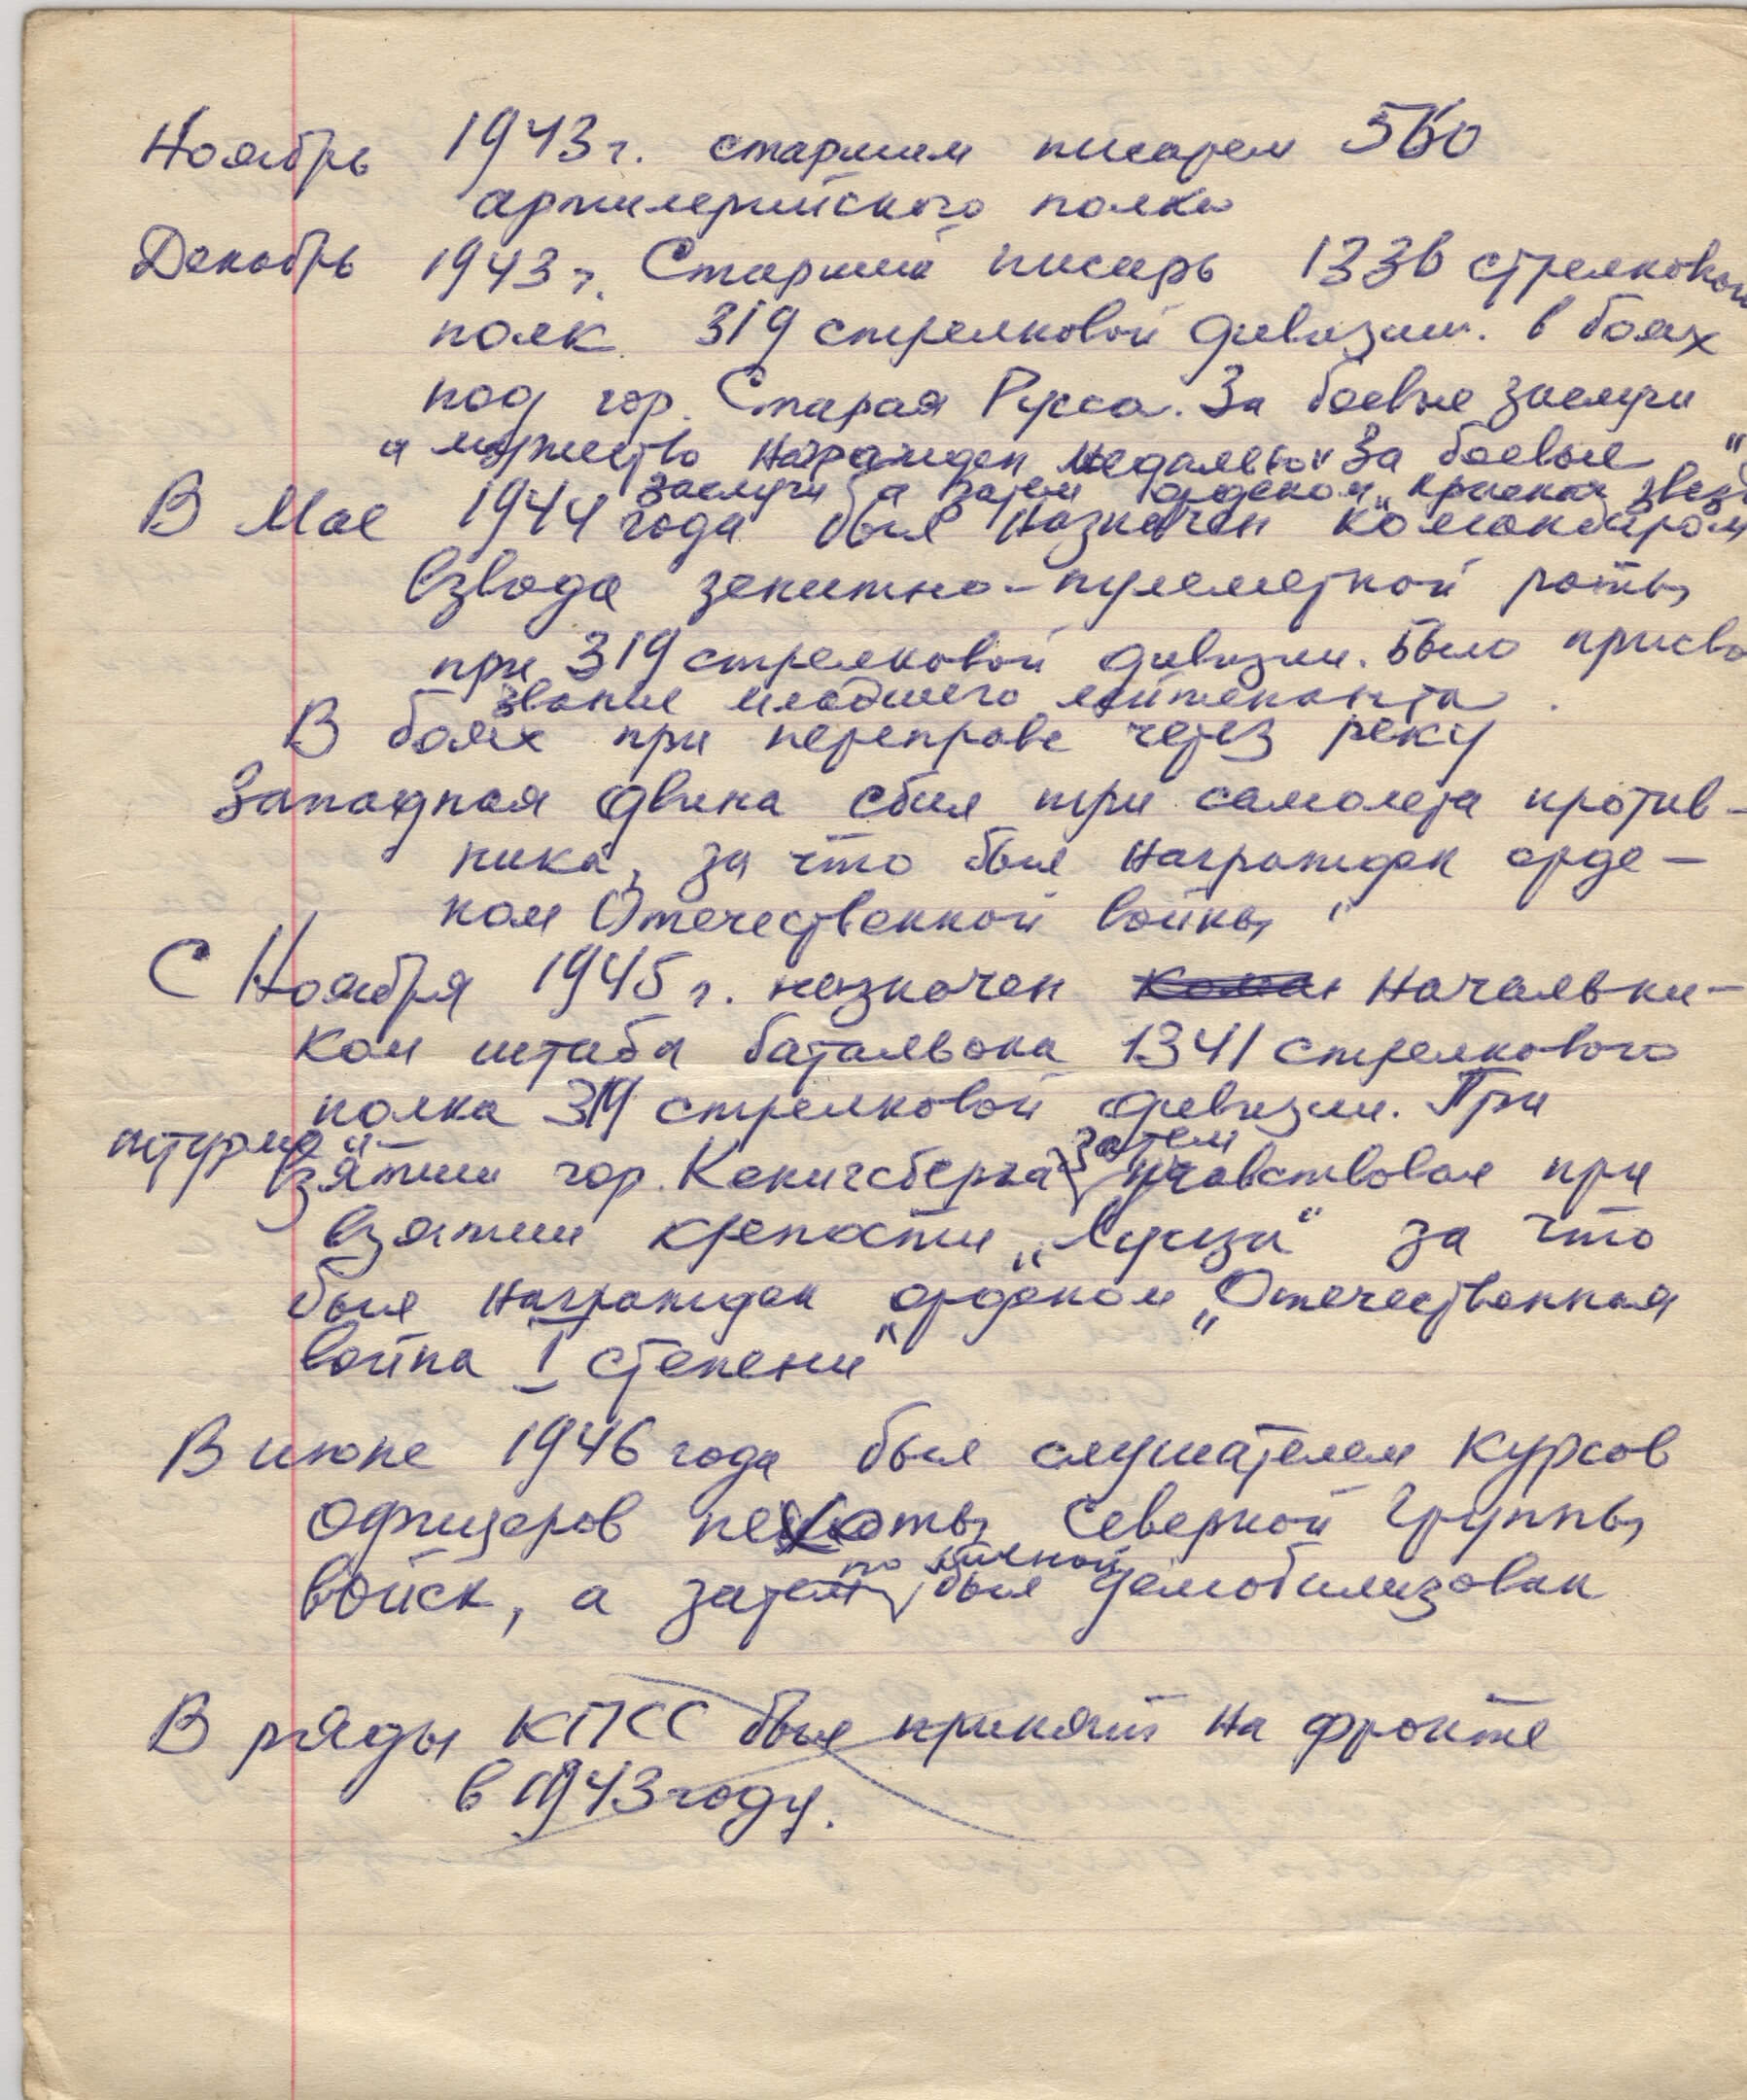 Ноябрь 1943 г. старшим писарем 560
артилерийского полка
Декабрь 1943 г. Старший писарь 1336 стрелковой
полк 319 стрелковой дивизии. в боях
под гор. Старая Русса. За боевые заслуги
и мужество награжден медалью "За боевые
заслуги" а затем орденом "красная звез
В Мае 1944 года был назначен командиром
взвода зенитно-пулеметной роты
при 319 стрелковой дивизии. было присво
звание младшего лейтенанта.
В боях при переправе через реку
Западная двина сбил три самолета против-
ника, за что был награжден орде-
ном Отечественной войны"
С Ноября 1945 г. назначен Начальни-
ком штаба батальона 1341 стрелкового
полка 319 стрелковой дивизии. При
штурме и
взятии гор. Кенигсберга, затем учавствовал при
взятии крепости "Луиза" за что
был награжден орденом "Отечественная
война I степени"
В июне 1946 года был слушателем курсов
офицеров пехоты Северной группы
войск, а затем по был демобилизован
В ряды КПСС был принят на фронте
в 1943 году.